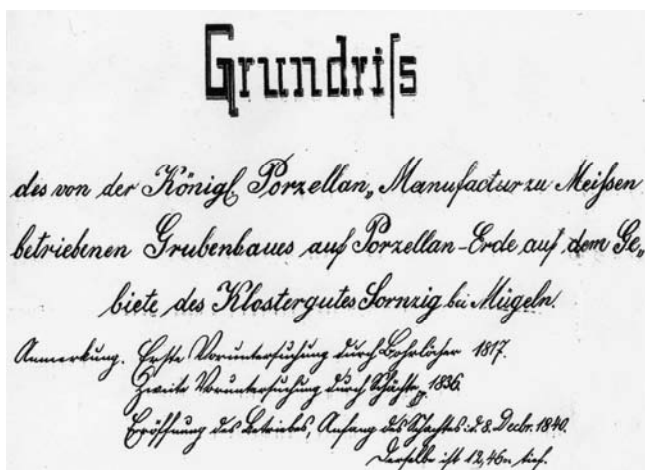 Grundriſs
des von der Königl. Porzellan„ Manufactur zu Meiſsen
betriebenen Grubenbaues auf Porzellan-Erde auf dem Ge„
biete des Klostergutes Sornzig bei Mügeln.
Anmerkung. Erste Voruntersuchung durch Bohrlöcher 1817.
Zweite Voruntersuchung durch Schächte, 1836.
Eröffnung des Betriebes, Anfang des Schachtes: d. 8. Decbr. 1840.
Derselbe ist 12,46m tief.